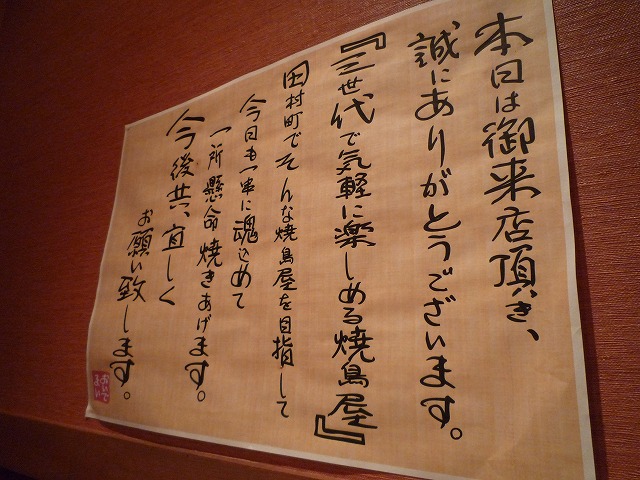 本日は御来店頂き、
誠にありがとうございます。
『三世代で気軽に楽しめる焼鳥屋』
田村町でそんな焼鳥屋を目指して
今日も一串に魂込めて
一所懸命焼きあげます。
今後共、宜しく
お願い致します。